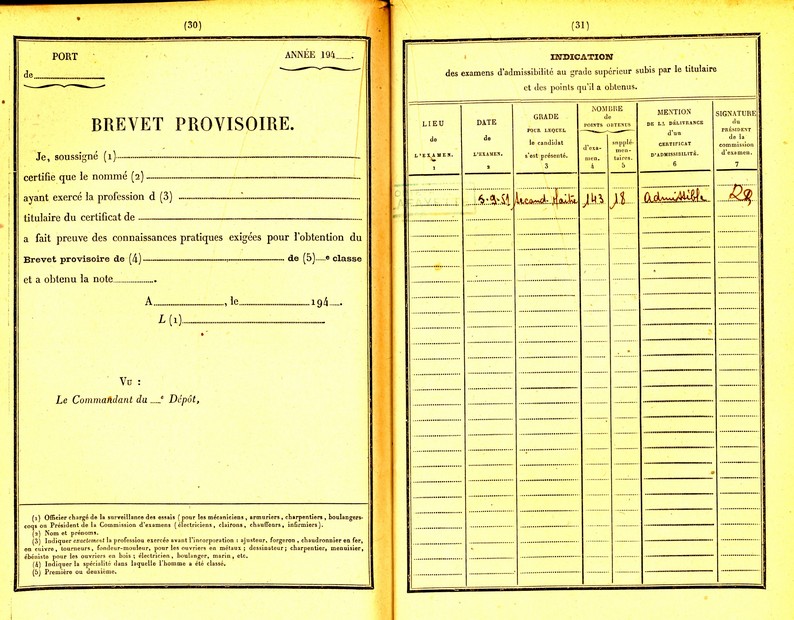 (30)
PORT
de
ANNÉE 194 .
BREVET PROVISOIRE.
Je, soussigné (1)
certifie que le nommé (2)
ayant exercé la profession d (3)
titulaire du certificat de
a fait preuve des connaissances pratiques exigées pour l'obtention du
Brevet provisoire de (4) de (5) e classe
et a obtenu la note .
A , le 194 .
L (1)
Vu :
Le Commandant du e Dépôt,
(1) Officier chargé de la surveillance des essais (pour les mécaniciens, armuriers, charpentiers, boulangers-
coqs ou Président de la Commission d'examens (électriciens, clairons, chauffeurs, infirmiers).
(2) Nom et prénoms.
(3) Indiquer exactement la profession exercée avant l'incorporation : ajusteur, forgeron, chaudronnier en fer,
en cuivre, tourneurs, fondeur-mouleur, pour les ouvriers en métaux ; dessinateur ; charpentier, menuisier,
ébéniste pour les ouvriers en bois ; électricien, boulanger, marin, etc.
(4) Indiquer la spécialité dans laquelle l'homme a été classé.
(5) Première ou deuxième.
(31)
INDICATION
des examens d'admissibilité au grade supérieur subis par le titulaire
et des points qu'il a obtenus.
LIEU
de
L'EXAMEN.
1
DATE
de
L'EXAMEN.
2
GRADE
POUR LEQUEL
le candidat
s'est présenté.
3
NOMBRE
de
POINTS OBTENUS
d'exa-
men.
4
supplé-
men-
taires.
5
MENTION
DE LA DÉLIVRANCE
d'un
CERTIFICAT
D'ADMISSIBILITÉ.
6
SIGNATURE
du
PRÉSIDENT
de la
commission
d'examen.
7
5-9-51 Second Maître 143 18 admissible